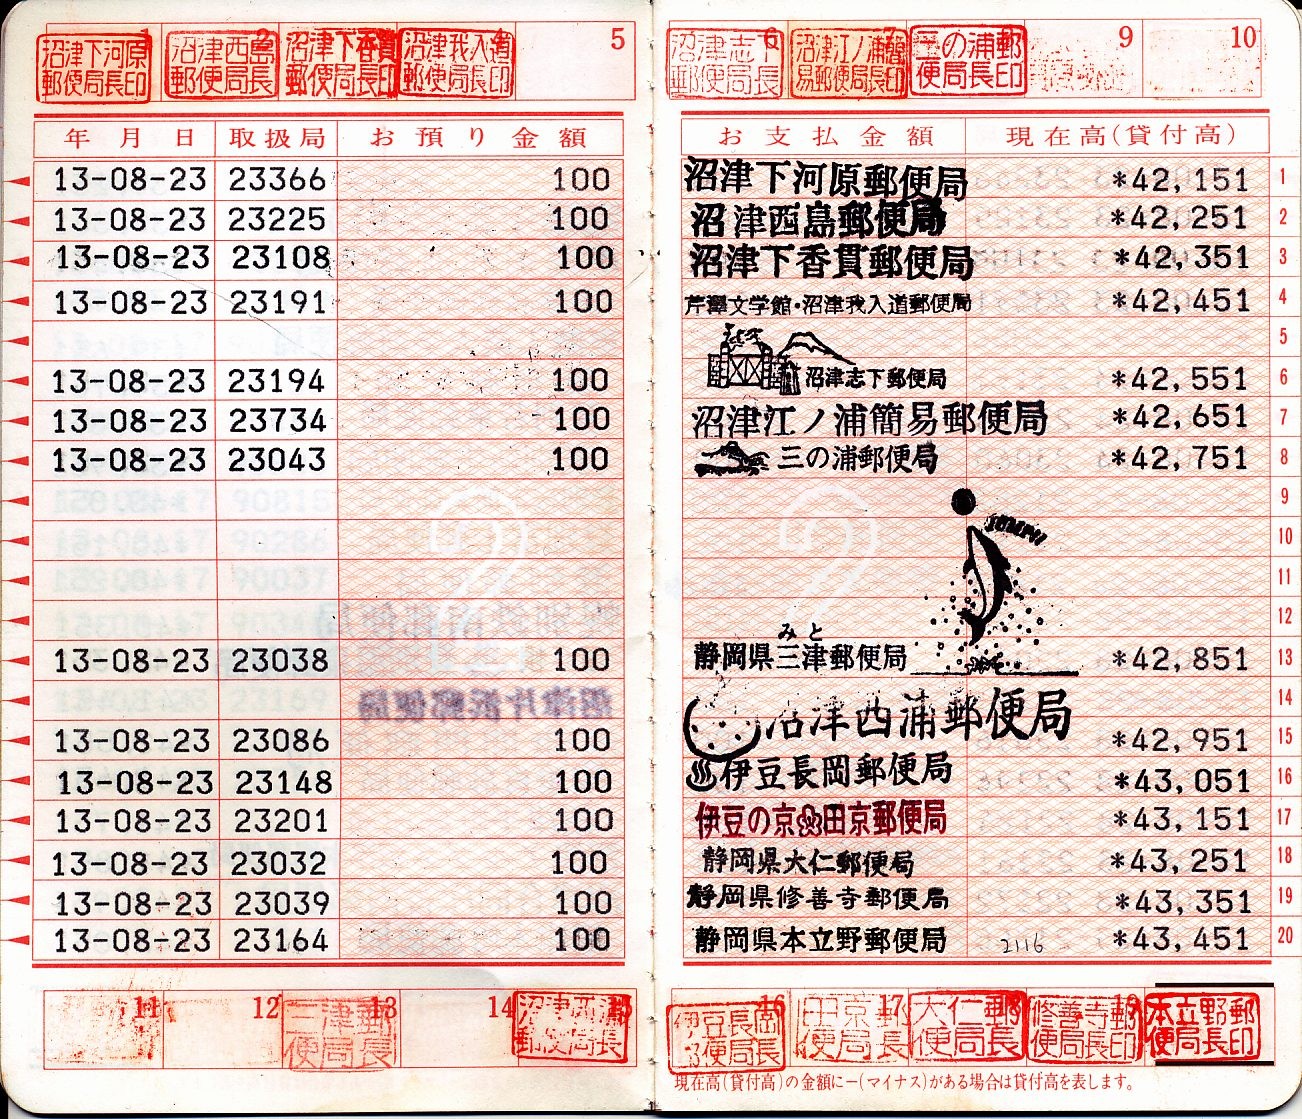 1 2 4 5 6 7 9 10
沼津下河原郵便局長印
沼津西島郵便局長印
沼津下香貫郵便局長印
沼津我入道郵便局長印
沼津志下郵便局長
沼津江ノ浦簡易郵便局長印
三の浦郵便局長印
年月日 取扱局 お預り金額 お支払金額 現在高(貸付高)
13-08-23 23366 100 沼津下河原郵便局 *42,151 1
13-08-23 23225 100 沼津西島郵便局 *42,251 2
13-08-23 23108 100 沼津下香貫郵便局 *42,351 3
13-08-23 23191 100 芹澤文学館・沼津我入道郵便局 *42,451 4
5
13-08-23 23194 100 沼津志下郵便局 *42,551 6
13-08-23 23734 100 沼津江ノ浦簡易郵便局 *42,651 7
13-08-23 23043 100 三の浦郵便局 *42,751 8
9
JUMP!!
10
11
12
みと
13-08-23 23038 100 静岡県三津郵便局 *42,851 13
14
13-08-23 23086 100 沼津西浦郵便局 *42,951 15
13-08-23 23148 100 ♨伊豆長岡郵便局 *43,051 16
13-08-23 23201 100 伊豆の京田京郵便局 *43,151 17
13-08-23 23032 100 静岡県大仁郵便局 *43,251 18
13-08-23 23039 100 静岡県修善寺郵便局 *43,351 19
13-08-23 23164 100 静岡県本立野郵便局 2116 *43,451 20
11 12 13 14 15 16 17 18 19
三津郵便局長
沼津西浦郵便局長
伊豆長岡郵便局長
田京郵便局長
大仁郵便局長
修善寺郵便局長印
本立野郵便局長印
現在高(貸付高)の金額に−(マイナス)がある場合は貸付高を表します。